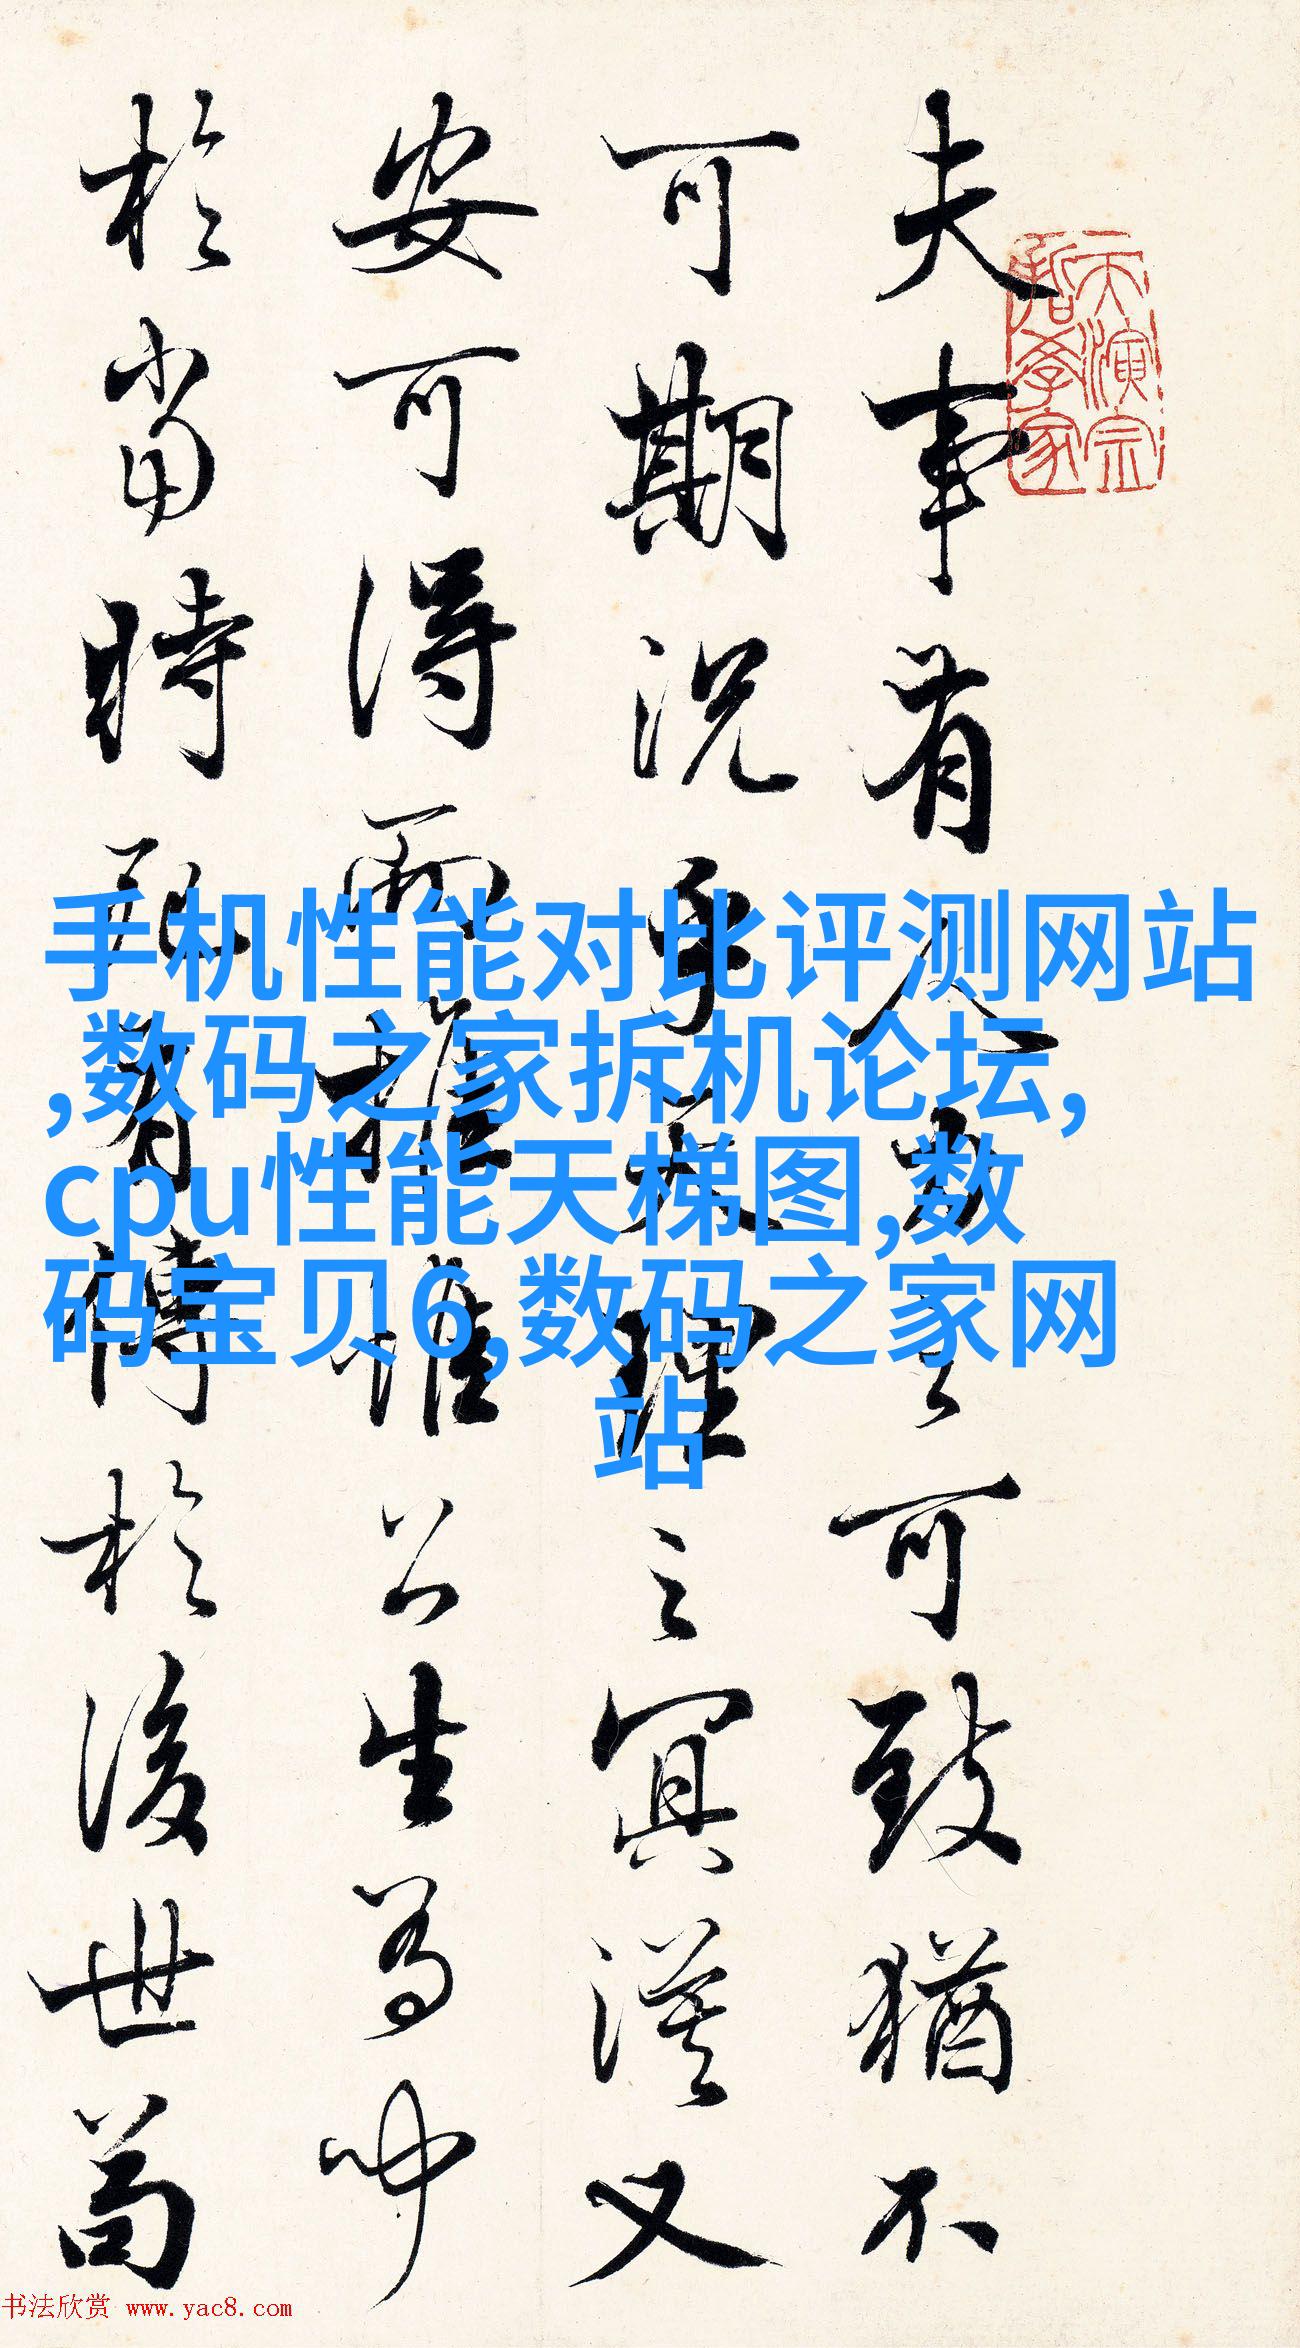 夫事有人力之可致猶不
可期況乎天理之冥漠又
安可得而推惟公生有聞
於當時死有傳於後世苟
天演宗
哲學家
手机性能对比评测网站
,数码之家拆机论坛,
cpu性能天梯图,数
码宝贝6,数码之家网
站
书法欣赏 www.yac8.com